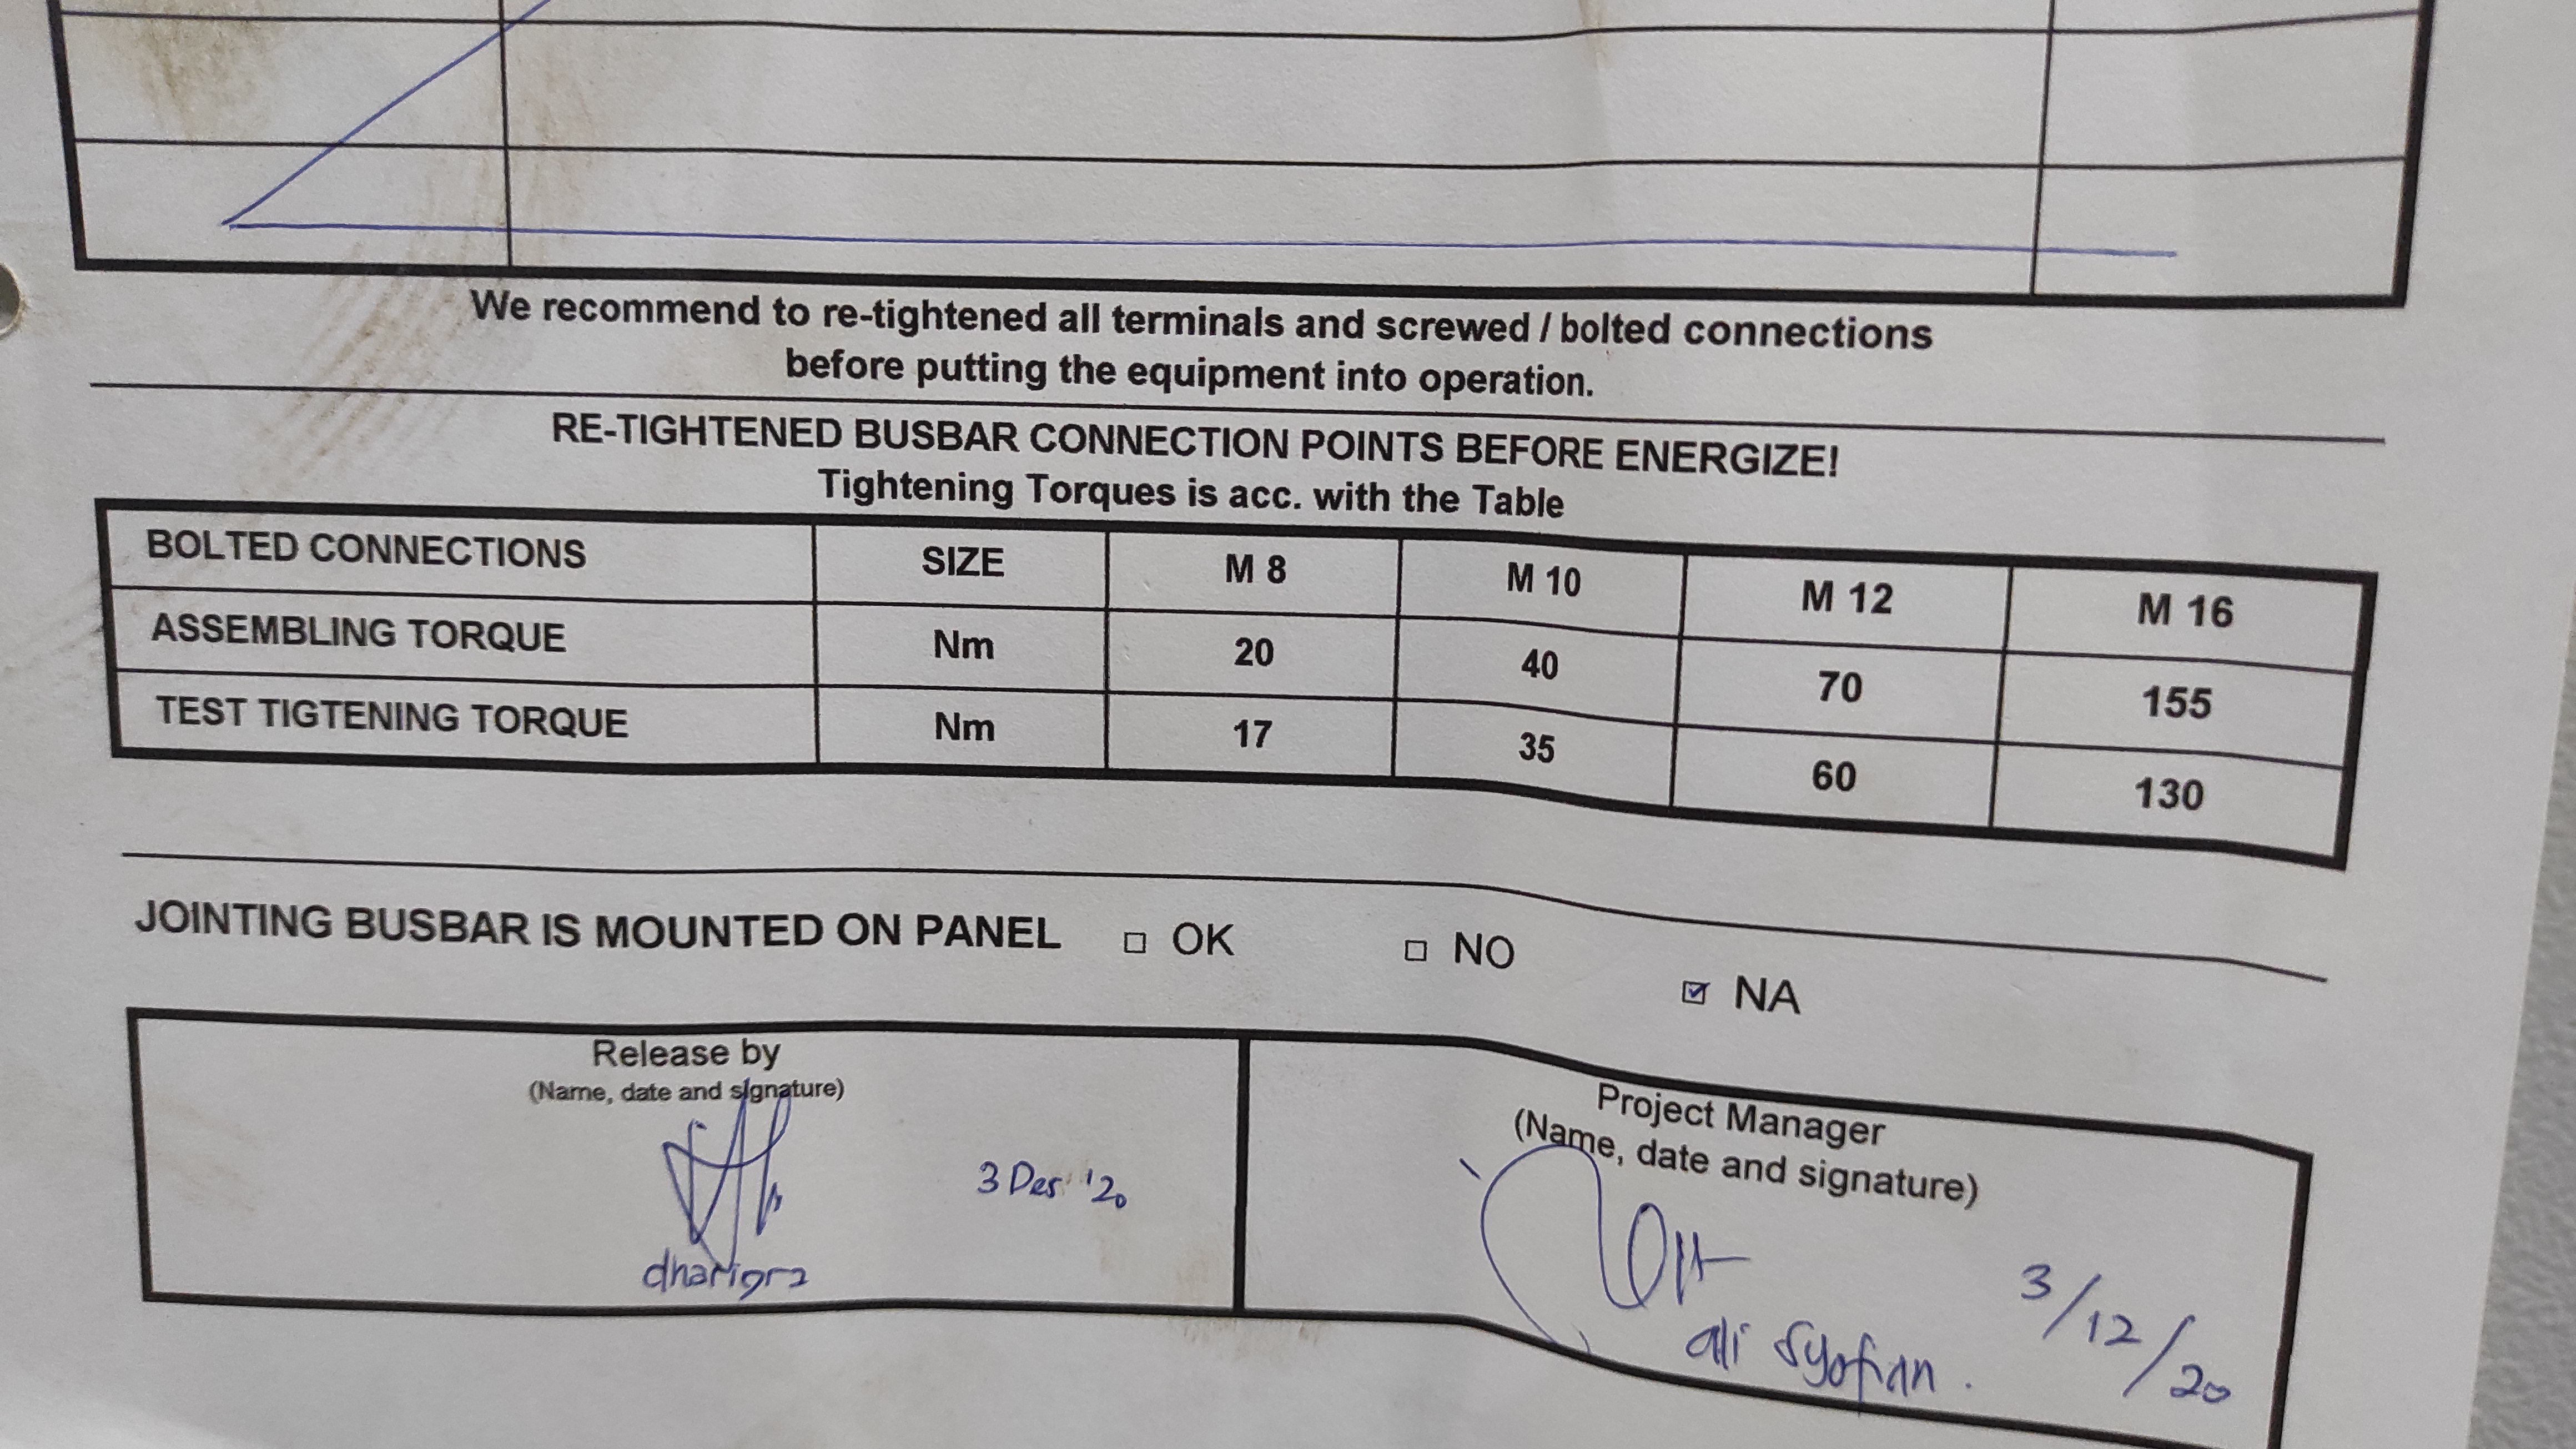 We recommend to re-tightened all terminals and screwed / bolted connections
before putting the equipment into operation.
RE-TIGHTENED BUSBAR CONNECTION POINTS BEFORE ENERGIZE!
Tightening Torques is acc. with the Table
BOLTED CONNECTIONS SIZE M 8 M 10 M 12 M 16
ASSEMBLING TORQUE Nm 20 40 70 155
TEST TIGTENING TORQUE Nm 17 35 60 130
JOINTING BUSBAR IS MOUNTED ON PANEL □ OK □ NO ☑ NA
Release by
(Name, date and signature)
3 Des '20
Project Manager
(Name, date and signature)
ali syofian.
3/12/20